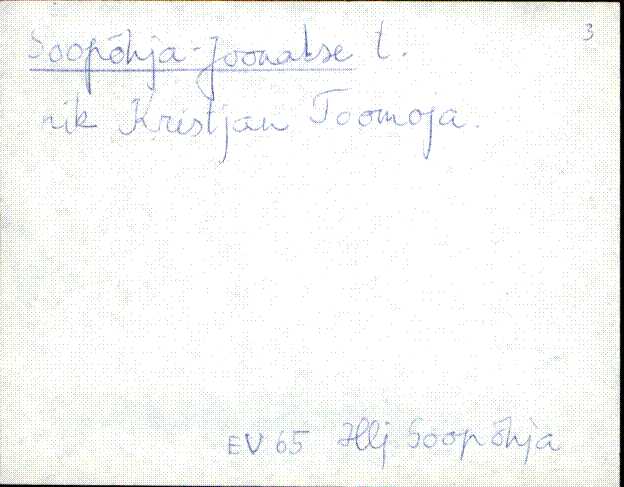 3
Soopõhja-Joonakse t.
nik Kristjan Toomoja.
EV 65 Hlj Soopõhja